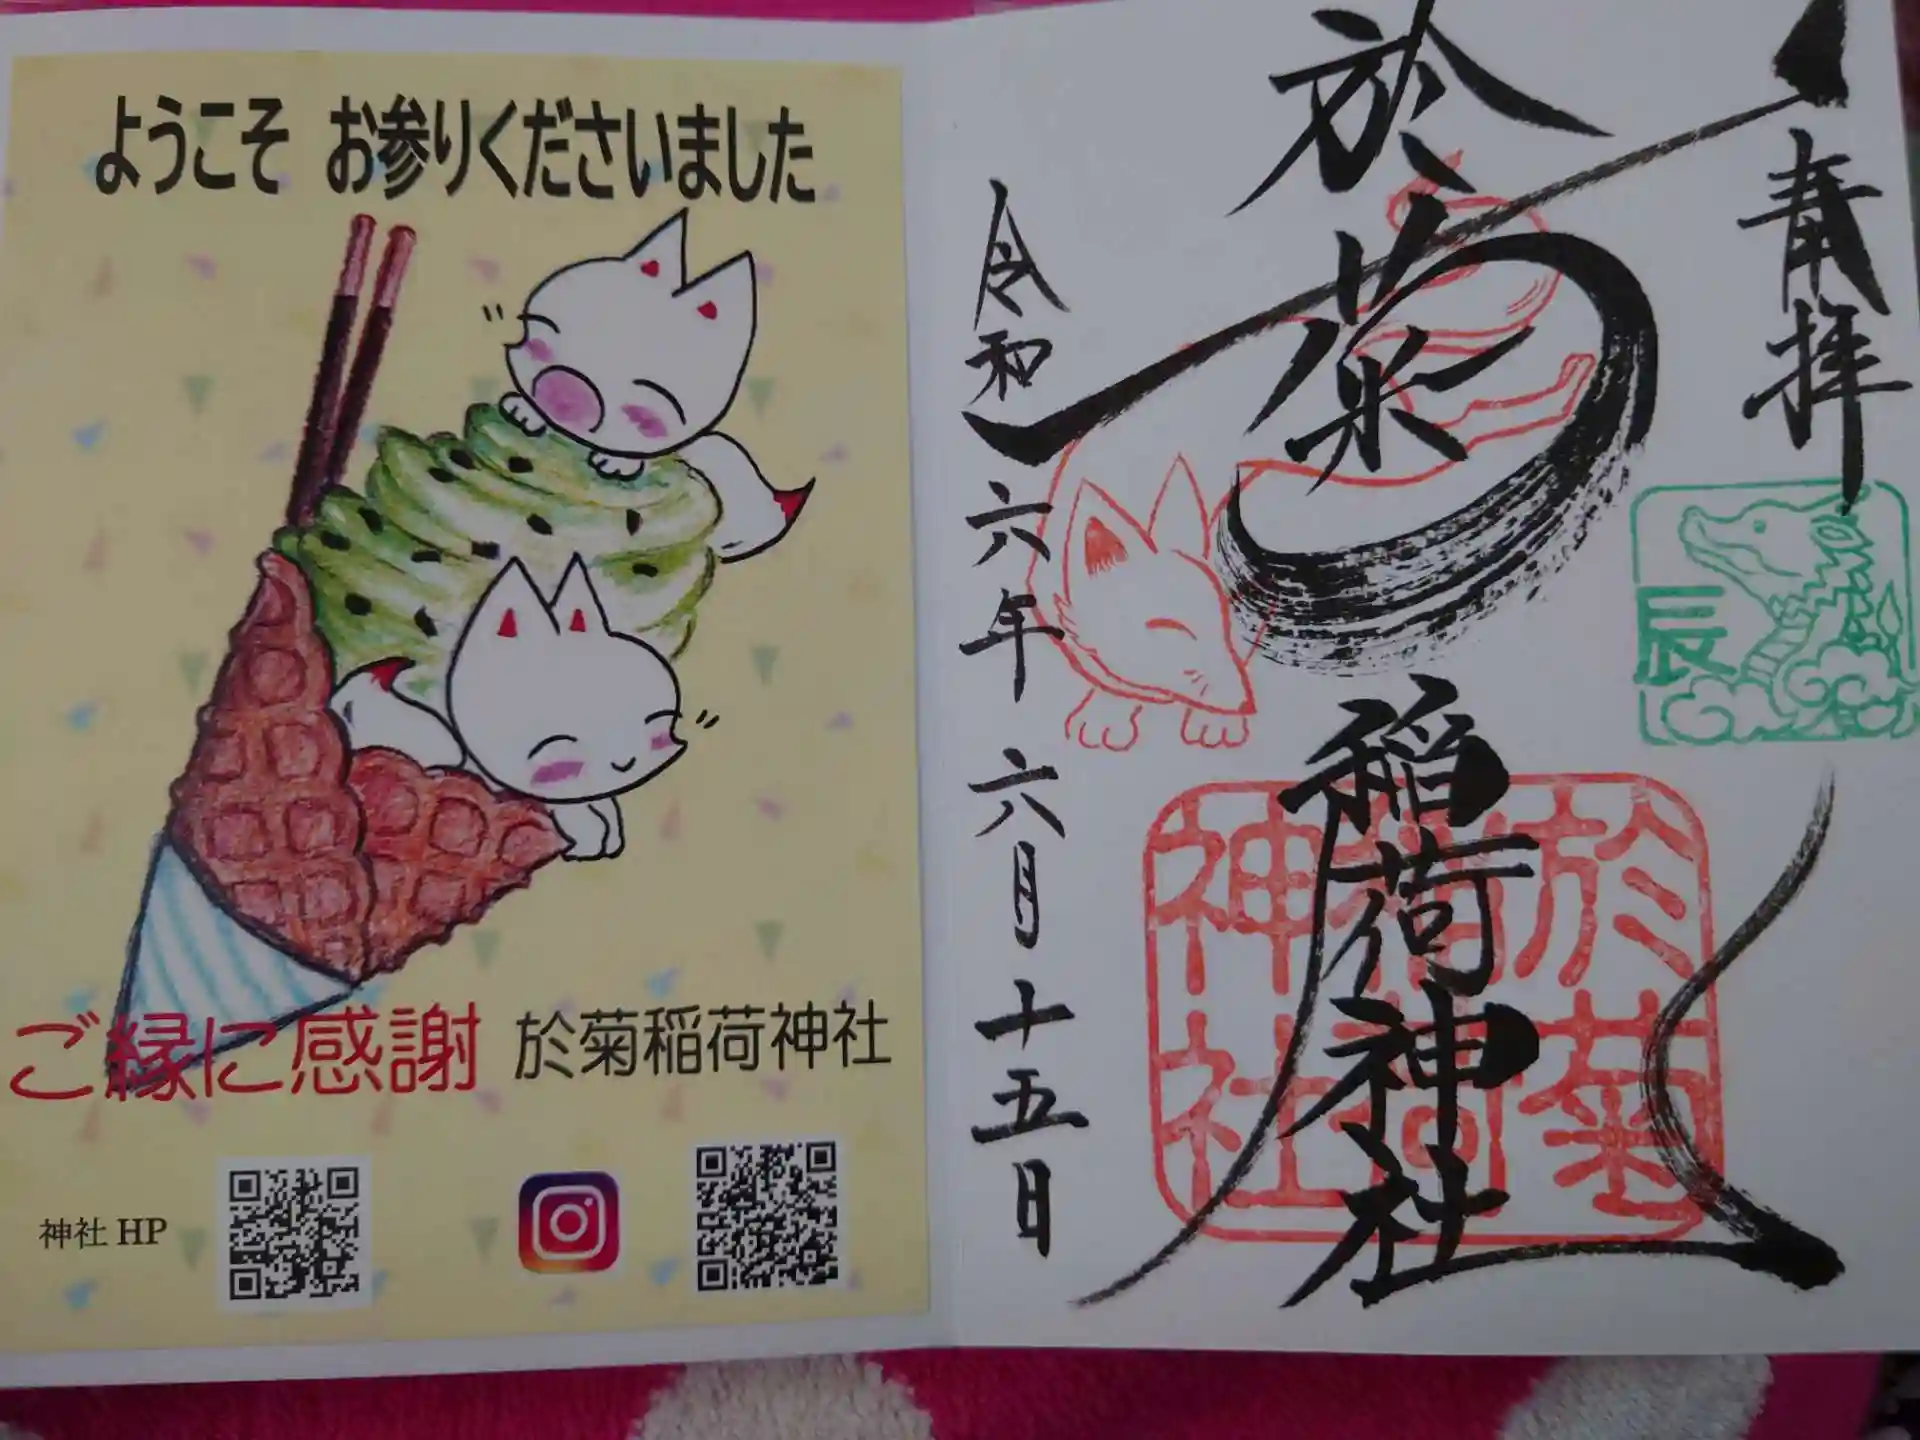 ようこそ お参りくださいました
ご縁に感謝 於菊稲荷神社
神社 HP
奉拝
辰
於菊稲荷神社
於菊稲荷神社
令和六年六月十五日